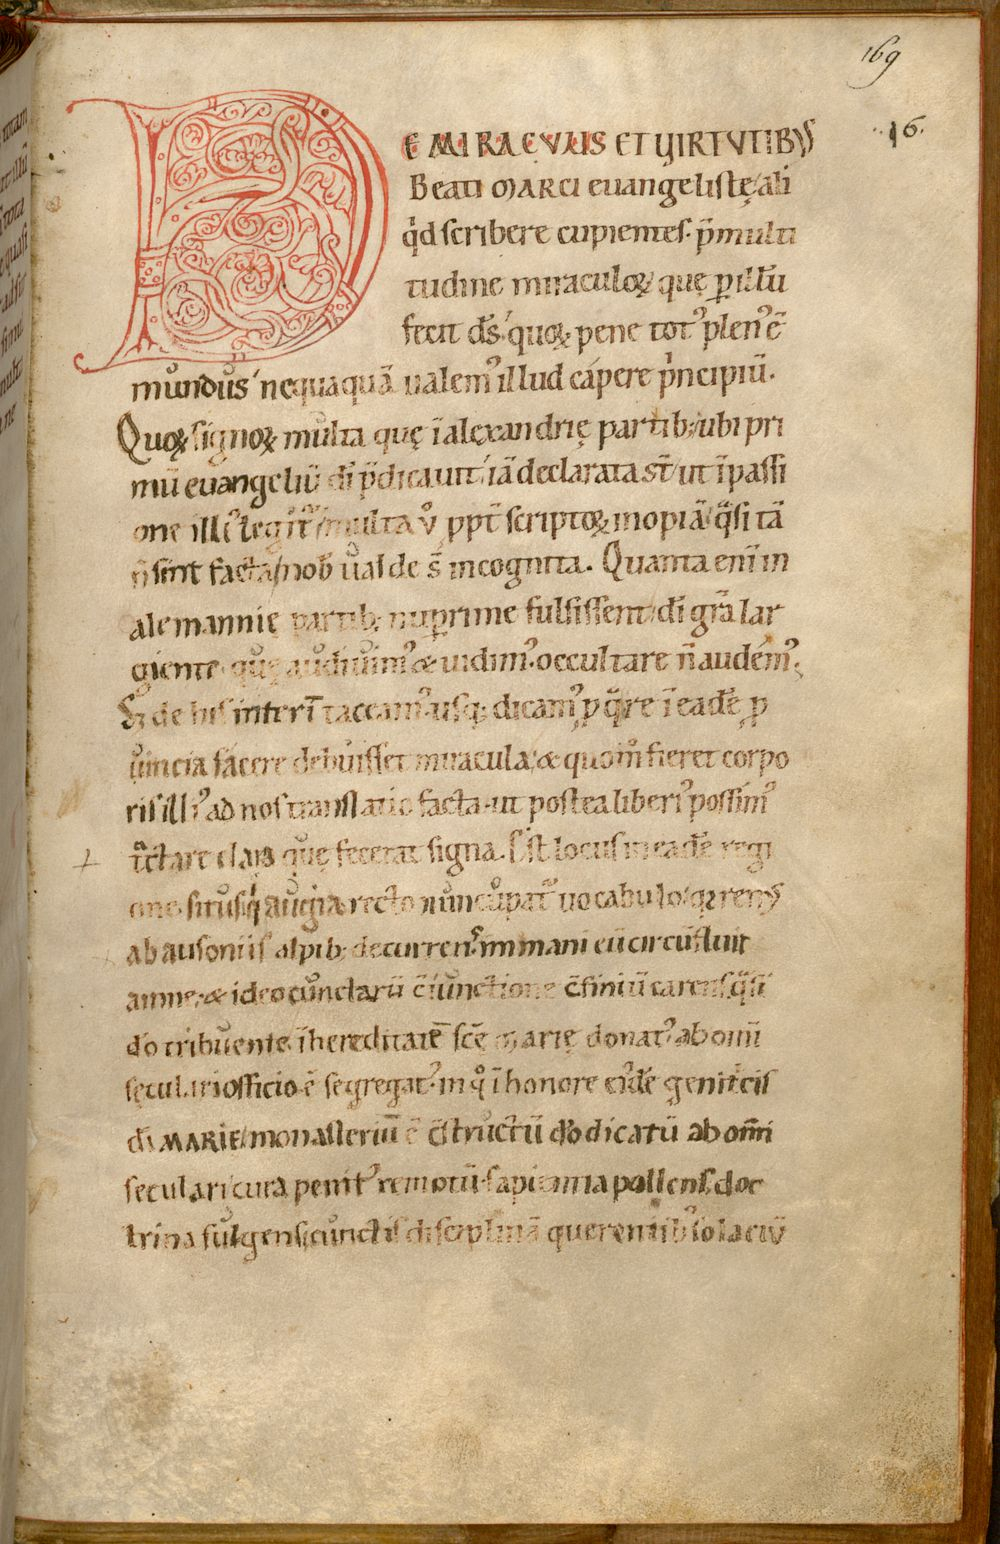 169
16.
DE MIRACVLIS ET VIRTVTIBVS
Beati MARCI euangelistę ali
qͥd scribere cupientes. p̄multi
tudine miraculoꝝ, quę ꝑ illū
fecit d̄s, quoꝝ pene totꝰ plenꝰ ē
mundus, nequaquā ualemꝰ illud capere pͥncipiū.
Quoꝝ signoꝝ multa quę ī alexandrię partib; ubi pri
mū euangeliū dī p̄dicauit, iā declarata st̄ ut ī passi
one illiꝰ legit᷑, multa ū ꝓpt̄ scriptoꝝ inopiā, qͣsi tā
n̄ sint facta, nob̄ ualde s̄ incognita. Quanta eni in
alemannie partib; nuꝑrime fulsissent, dī gr̄a lar
giente, quę audiuimꝰ & uidimꝰ, occultare n̄ audemꝰ.
Sꝫ de his interī taceamꝰ, usq; dicamꝰ, ꝑ qͣre ī eadē ꝓ
uincia facere debuisset miracula, & quom̊ fieret corpo
ris illiꝰ ad nos translatio facta, ut postea liberiꝰ possimꝰ
tͣctare claꝝ quę fecerat signa. Est locus in eadē regi
one situs, qͥ augia recto nuncupat᷑ uocabulo, qꝫ renꝰ
ab ausoniis alpib; decurrenˢ immani eū circūfluit
amne, & ideo cunctarū c̄iunctione c̄finiū carens, qͣsi
dō tribuente, ī hereditatē scē MARIę donatꝰ, ab omī
seculari officio ē segregatꝰ. in qͦ ī honore eiꝰdē genitͥcis
dī MARIE, monasteriū ē c̄structū dō dicatū ab omi
seculari cura penitꝰ remotū, sapientia pollens, doc
trina fulgens, cunctis disciplinā querentibꝰ solaciū